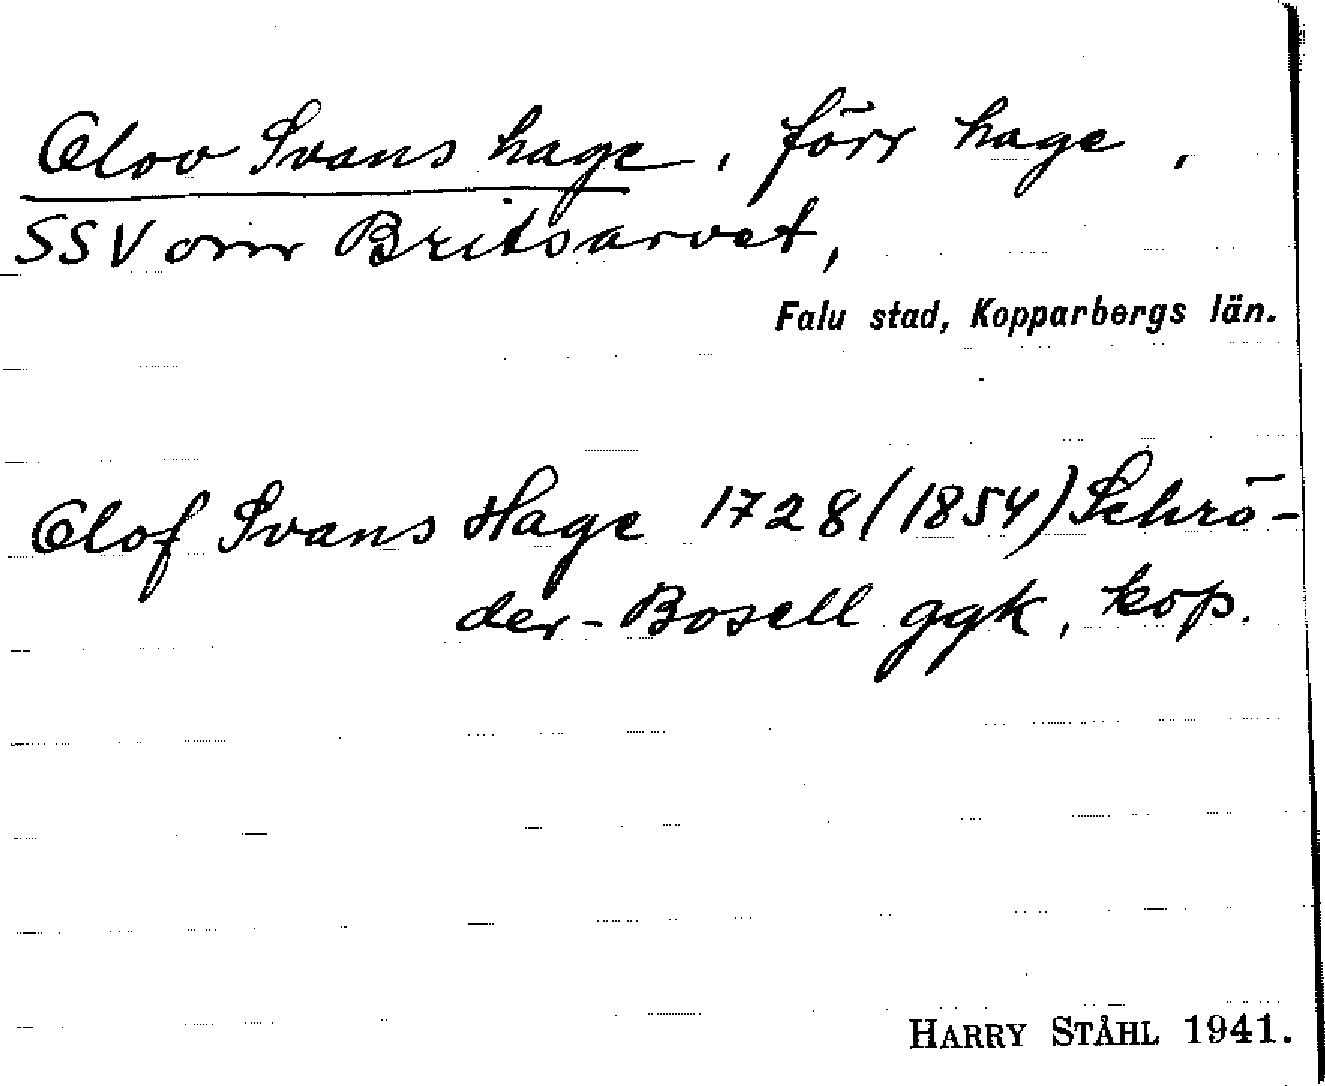 Olov Svans hage, förr hage,
SSV om Britsarvet,
Falu stad, Kopparbergs län.
Olof Svans Hage 1728 (1854) Schrö-
der-Bosell ggk, kop.
HARRY STÅHL 1941.